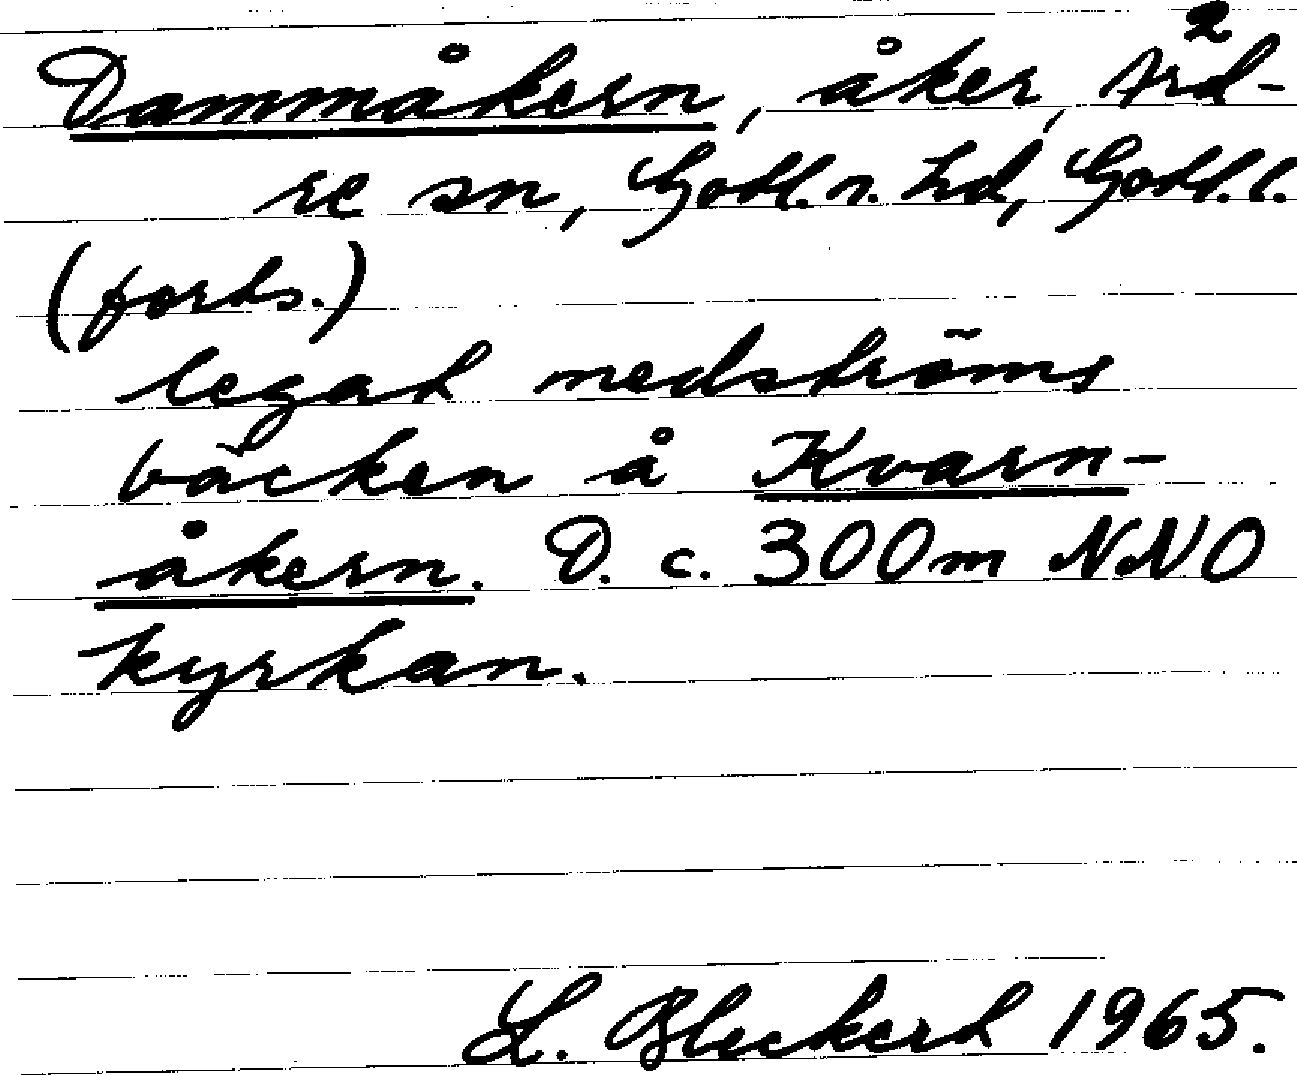 2
Dammåkern, åker, Ard-
re sn, Gotl. n. hd, Gotl. l.
(forts.)
legat medströms
bäcken å Kvarn-
åkern. D. c. 300m NNO
kyrkan.
L. Bleckert 1965.